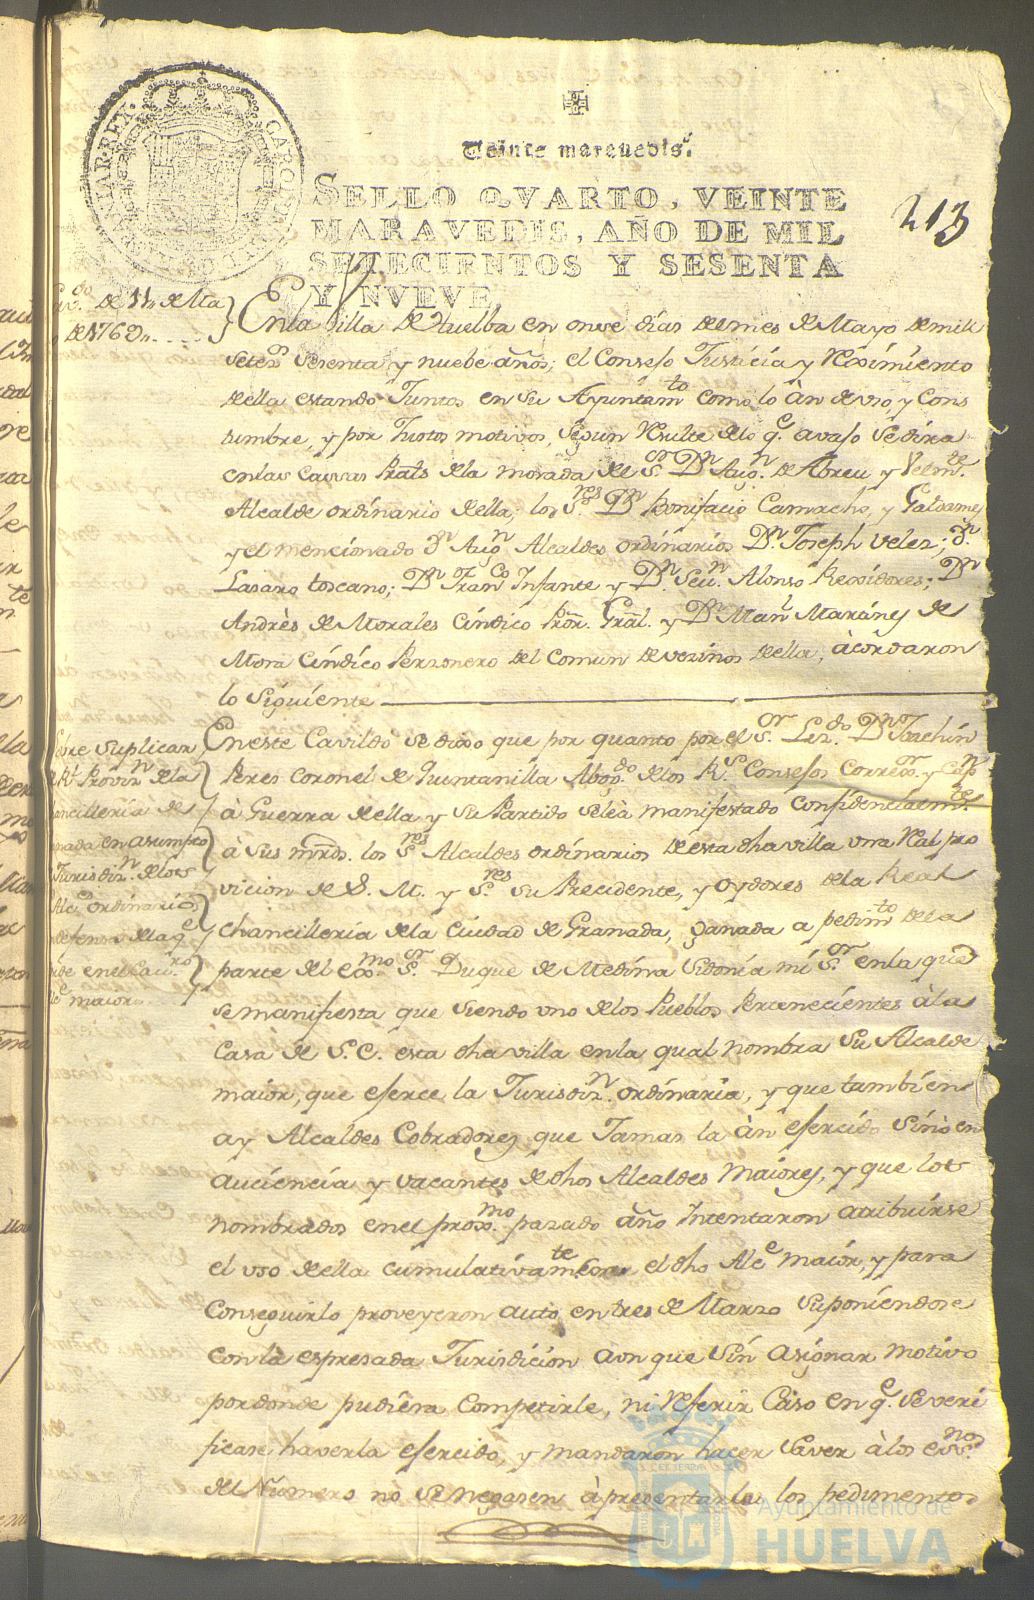 CAROLVS
HISPANIAR·REX·
Veinte marauedis.
SELLO QVARTO, VEINTE
MARAVEDIS, AÑO DE MIL
SETECIENTOS Y SESENTA
Y NVEVE.
213
de 11 de Ma
de 1769
En la Villa de Huelba en onse dias del mes de Mayo de mil
setezs. sesenta y nuebe años; el Consejo Justicia y Reximiento
della estando Juntos en su Ayuntamto como lo àn de uso, y Cos
tumbre, y por Justos motivos, segun Resulte de lo qe. avajo se dira
en las Cassas de la morada del Sr. Dn Augn. de Abreu y
Alcalde ordinario della; los Sres. Dn Bonifacio Camacho, y Galdames
y el mencionado Dn Augn Alcaldes ordinarios Dn. Joseph Velez; Dn
Lasaro toscano; Dn Franco Infante y Dn. Sevn. Alonso Rexidores; Dn
Andrès de Morales Cindico Pror. Gral. y Dn. Manl Martines de
Mora Cindico Perzonero del Comun de vezinos della, àcordaron
lo siguiente
Sobre suplicar
Rl. Provizn. de la
chancilleria de
Granada en asumpto
Jurisdizn. de los
Alces. ordinarios
defensa de la qe
Alce maior
En este Cavildo se dixo que por quanto por el Sr. Lizdo. Dn Joachin
Peres Coronel de Quintanilla Abogdo. de los Rs. Consejos Correxor. y Capn
à Guerra della y su Partido se leà manifestado confidencialmte.
à sus mrds. los Sres Alcaldes ordinarios de esta dha villa una Real pro
vicion de S. M. y Sres. su Precidente, y oydores de la Real
chancilleria de la Ciudad de Granada, ganada a pedimto de la
parte del exmo. Sr. Duque de Medina Sidonia mi Sr. en la que
se manifiesta que siendo uno de los Pueblos Pertenecientes à la
Casa de S. E. esta dha villa en la qual nombra su Alcalde
maior, que eserce la Jurisdizn. ordinaria, y que tambien
ay Alcaldes Cobradores que Jamas la àn esercido sino en
auciencia y vacantes de dhos Alcaldes maiores, y que los
nombrados en el proxmo. pazado año Intentaron atribuirse
el uso della cumulativamte con el dho Alce maior, y para
Conseguirlo proveyeron auto en tres de Marzo suponiendose
con la espresada Jurisdicion aun que sin asignar motivo
por donde pudiera Competirle, ni Referir Caso en qe. se veri
ficase haverla esercido, y mandaron hacer saver à los essnos.
del Numero no se negasen à presentarles los pedimentos
Ayuntamiento de
HUELVA